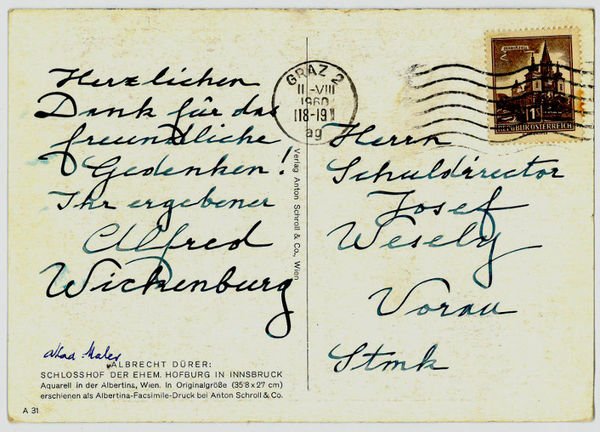 Herzlichen
Dank für das
freundliche
Gedenken!
Ihr ergebener
Alfred
Wickenburg
akad. Maler
ALBRECHT DÜRER:
SCHLOSSHOF DER EHEM. HOFBURG IN INNSBRUCK
Aquarell in der Albertina, Wien. In Originalgröße (35'8 x 27 cm)
erschienen als Albertina-Facsimile-Druck bei Anton Schroll & Co.
A 31
Verlag Anton Schroll & Co., Wien
GRAZ 2
-VIII
1960
18-19
ag
1S
REPUBLIK ÖSTERREICH
Herrn
Schuldirector
Josef
Wesely
Vorau
Stmk